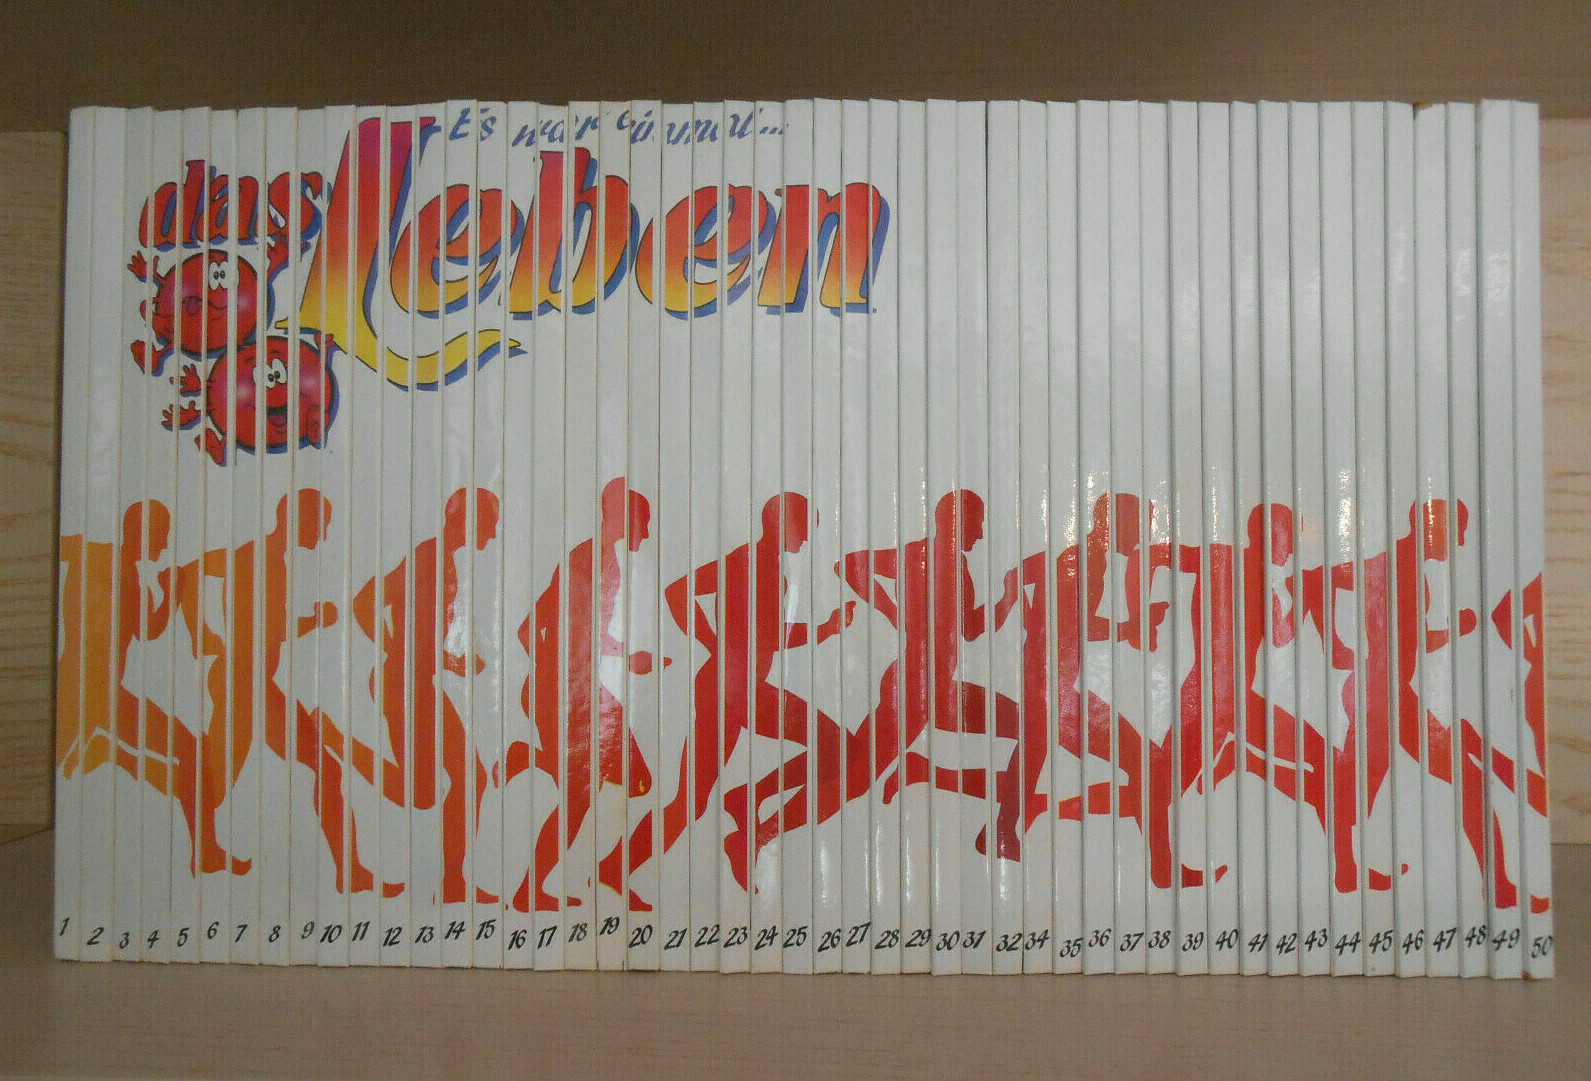 Es war einmal...
das Leben
1 2 3 4 5 6 7 8 9 10 11 12 13 14 15 16 17 18 19 20 21 22 23 24 25 26 27 28 29 30 31 32 34 35 36 37 38 39 40 41 42 43 44 45 46 47 48 49 50